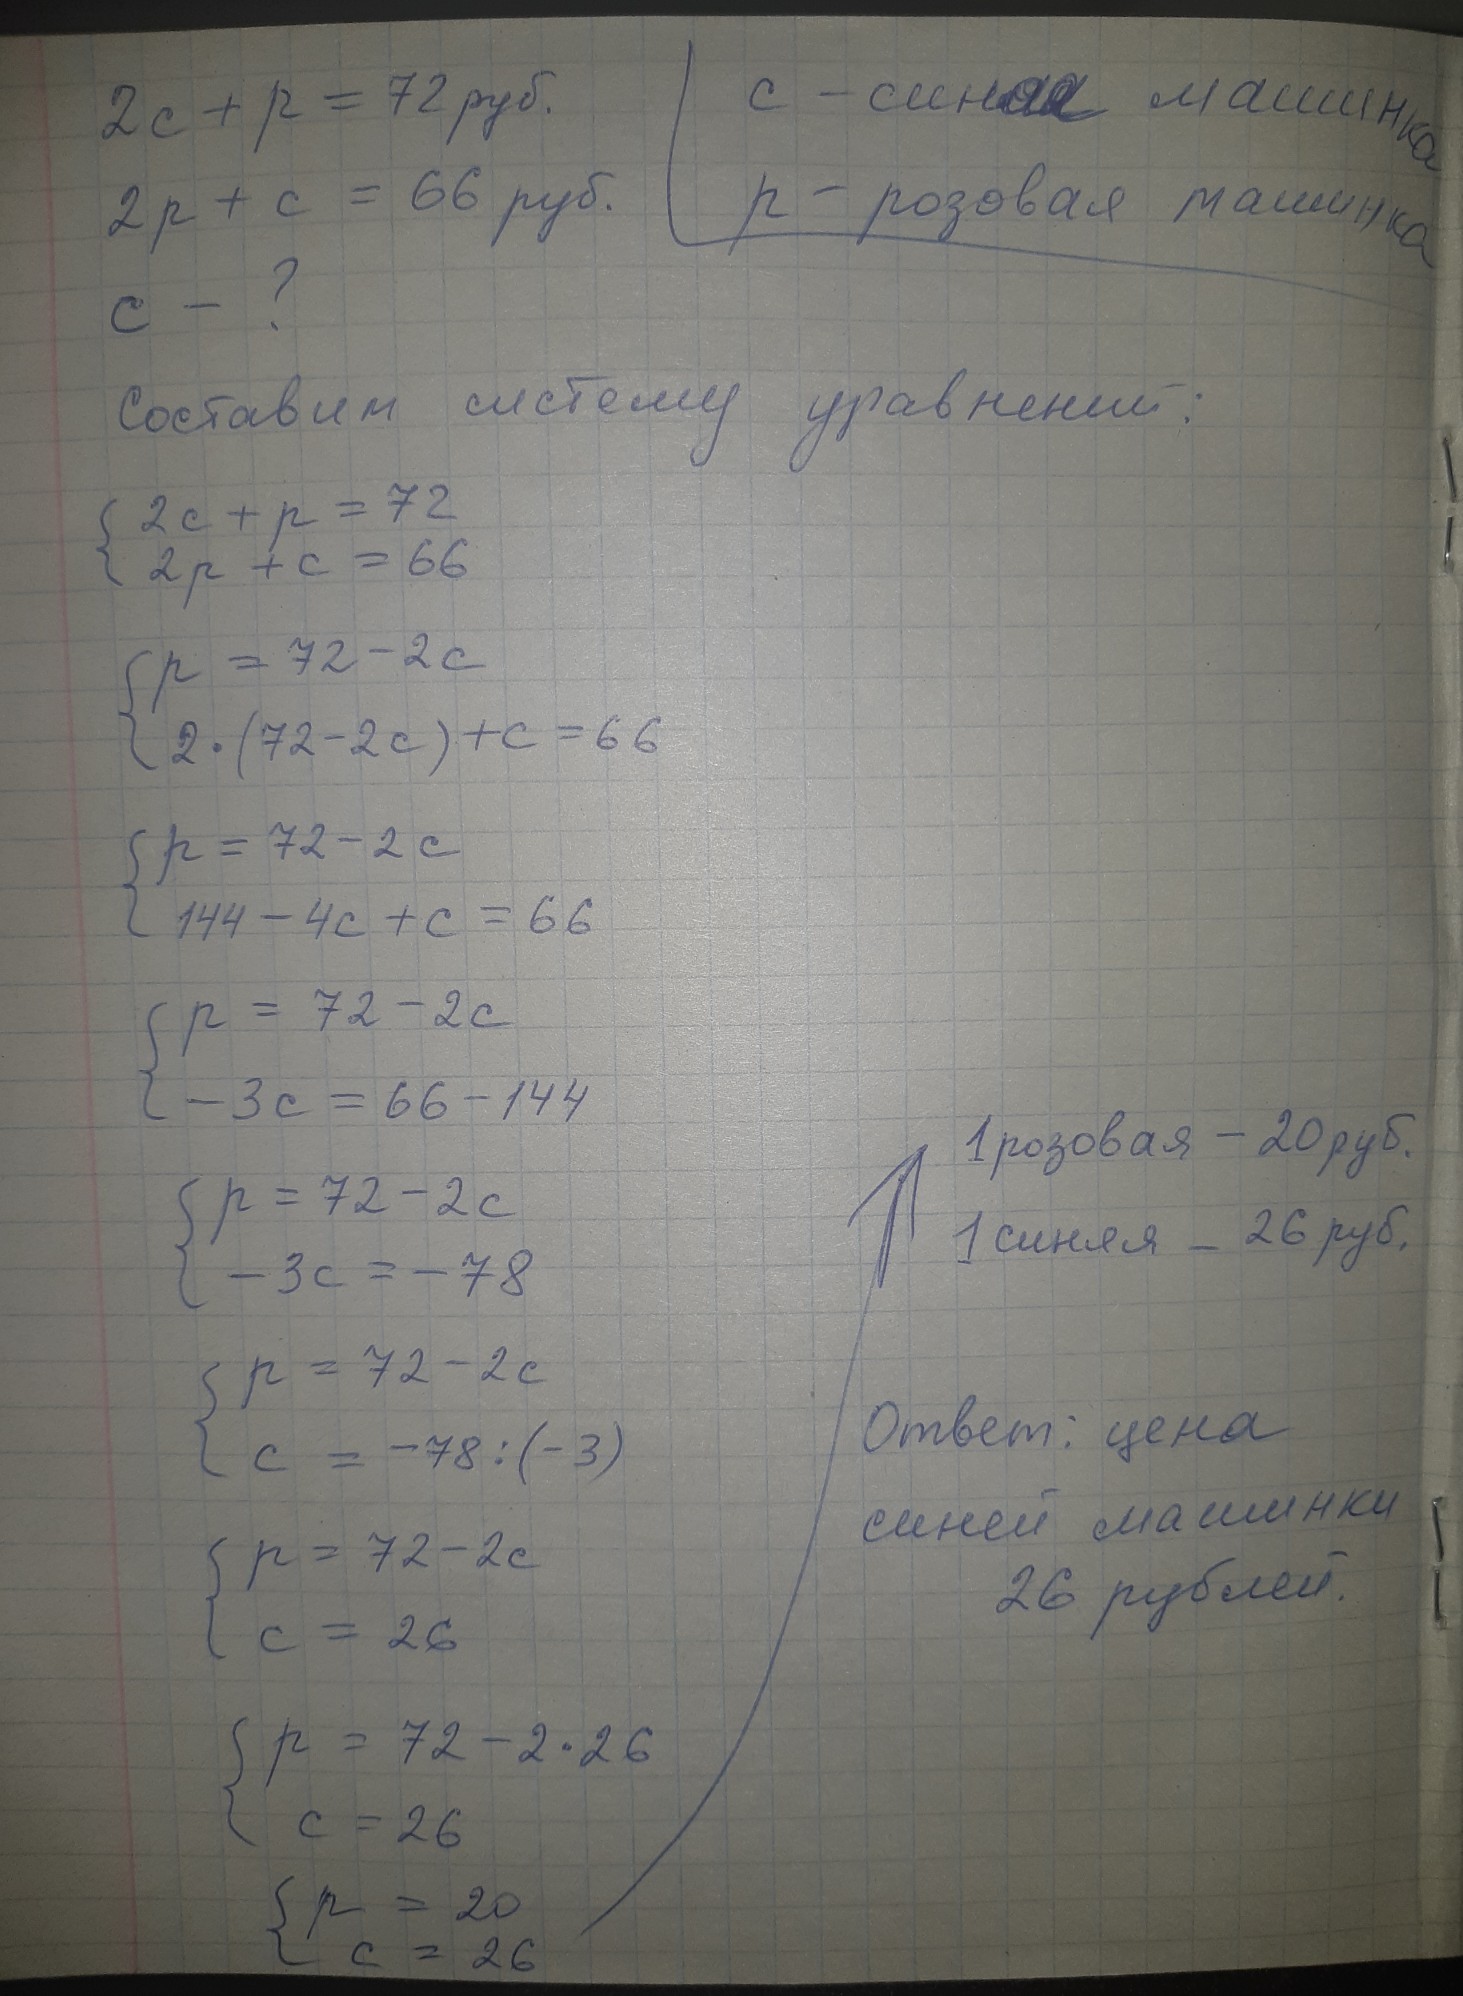 2с + р = 72 руб.
2р + с = 66 руб.
с - ?
с - синяя машинка
р - розовая машинка
Составим систему уравнений:
2с + р = 72
2р + с = 66
р = 72 - 2с
2·(72 - 2с) + с = 66
р = 72 - 2с
144 - 4с + с = 66
р = 72 - 2с
-3с = 66 - 144
р = 72 - 2с
-3с = -78
р = 72 - 2с
с = -78:(-3)
р = 72 - 2с
с = 26
р = 72 - 2·26
с = 26
р = 20
с = 26
1 розовая - 20 руб.
1 синяя - 26 руб.
Ответ: цена
синей машинки
26 рублей.